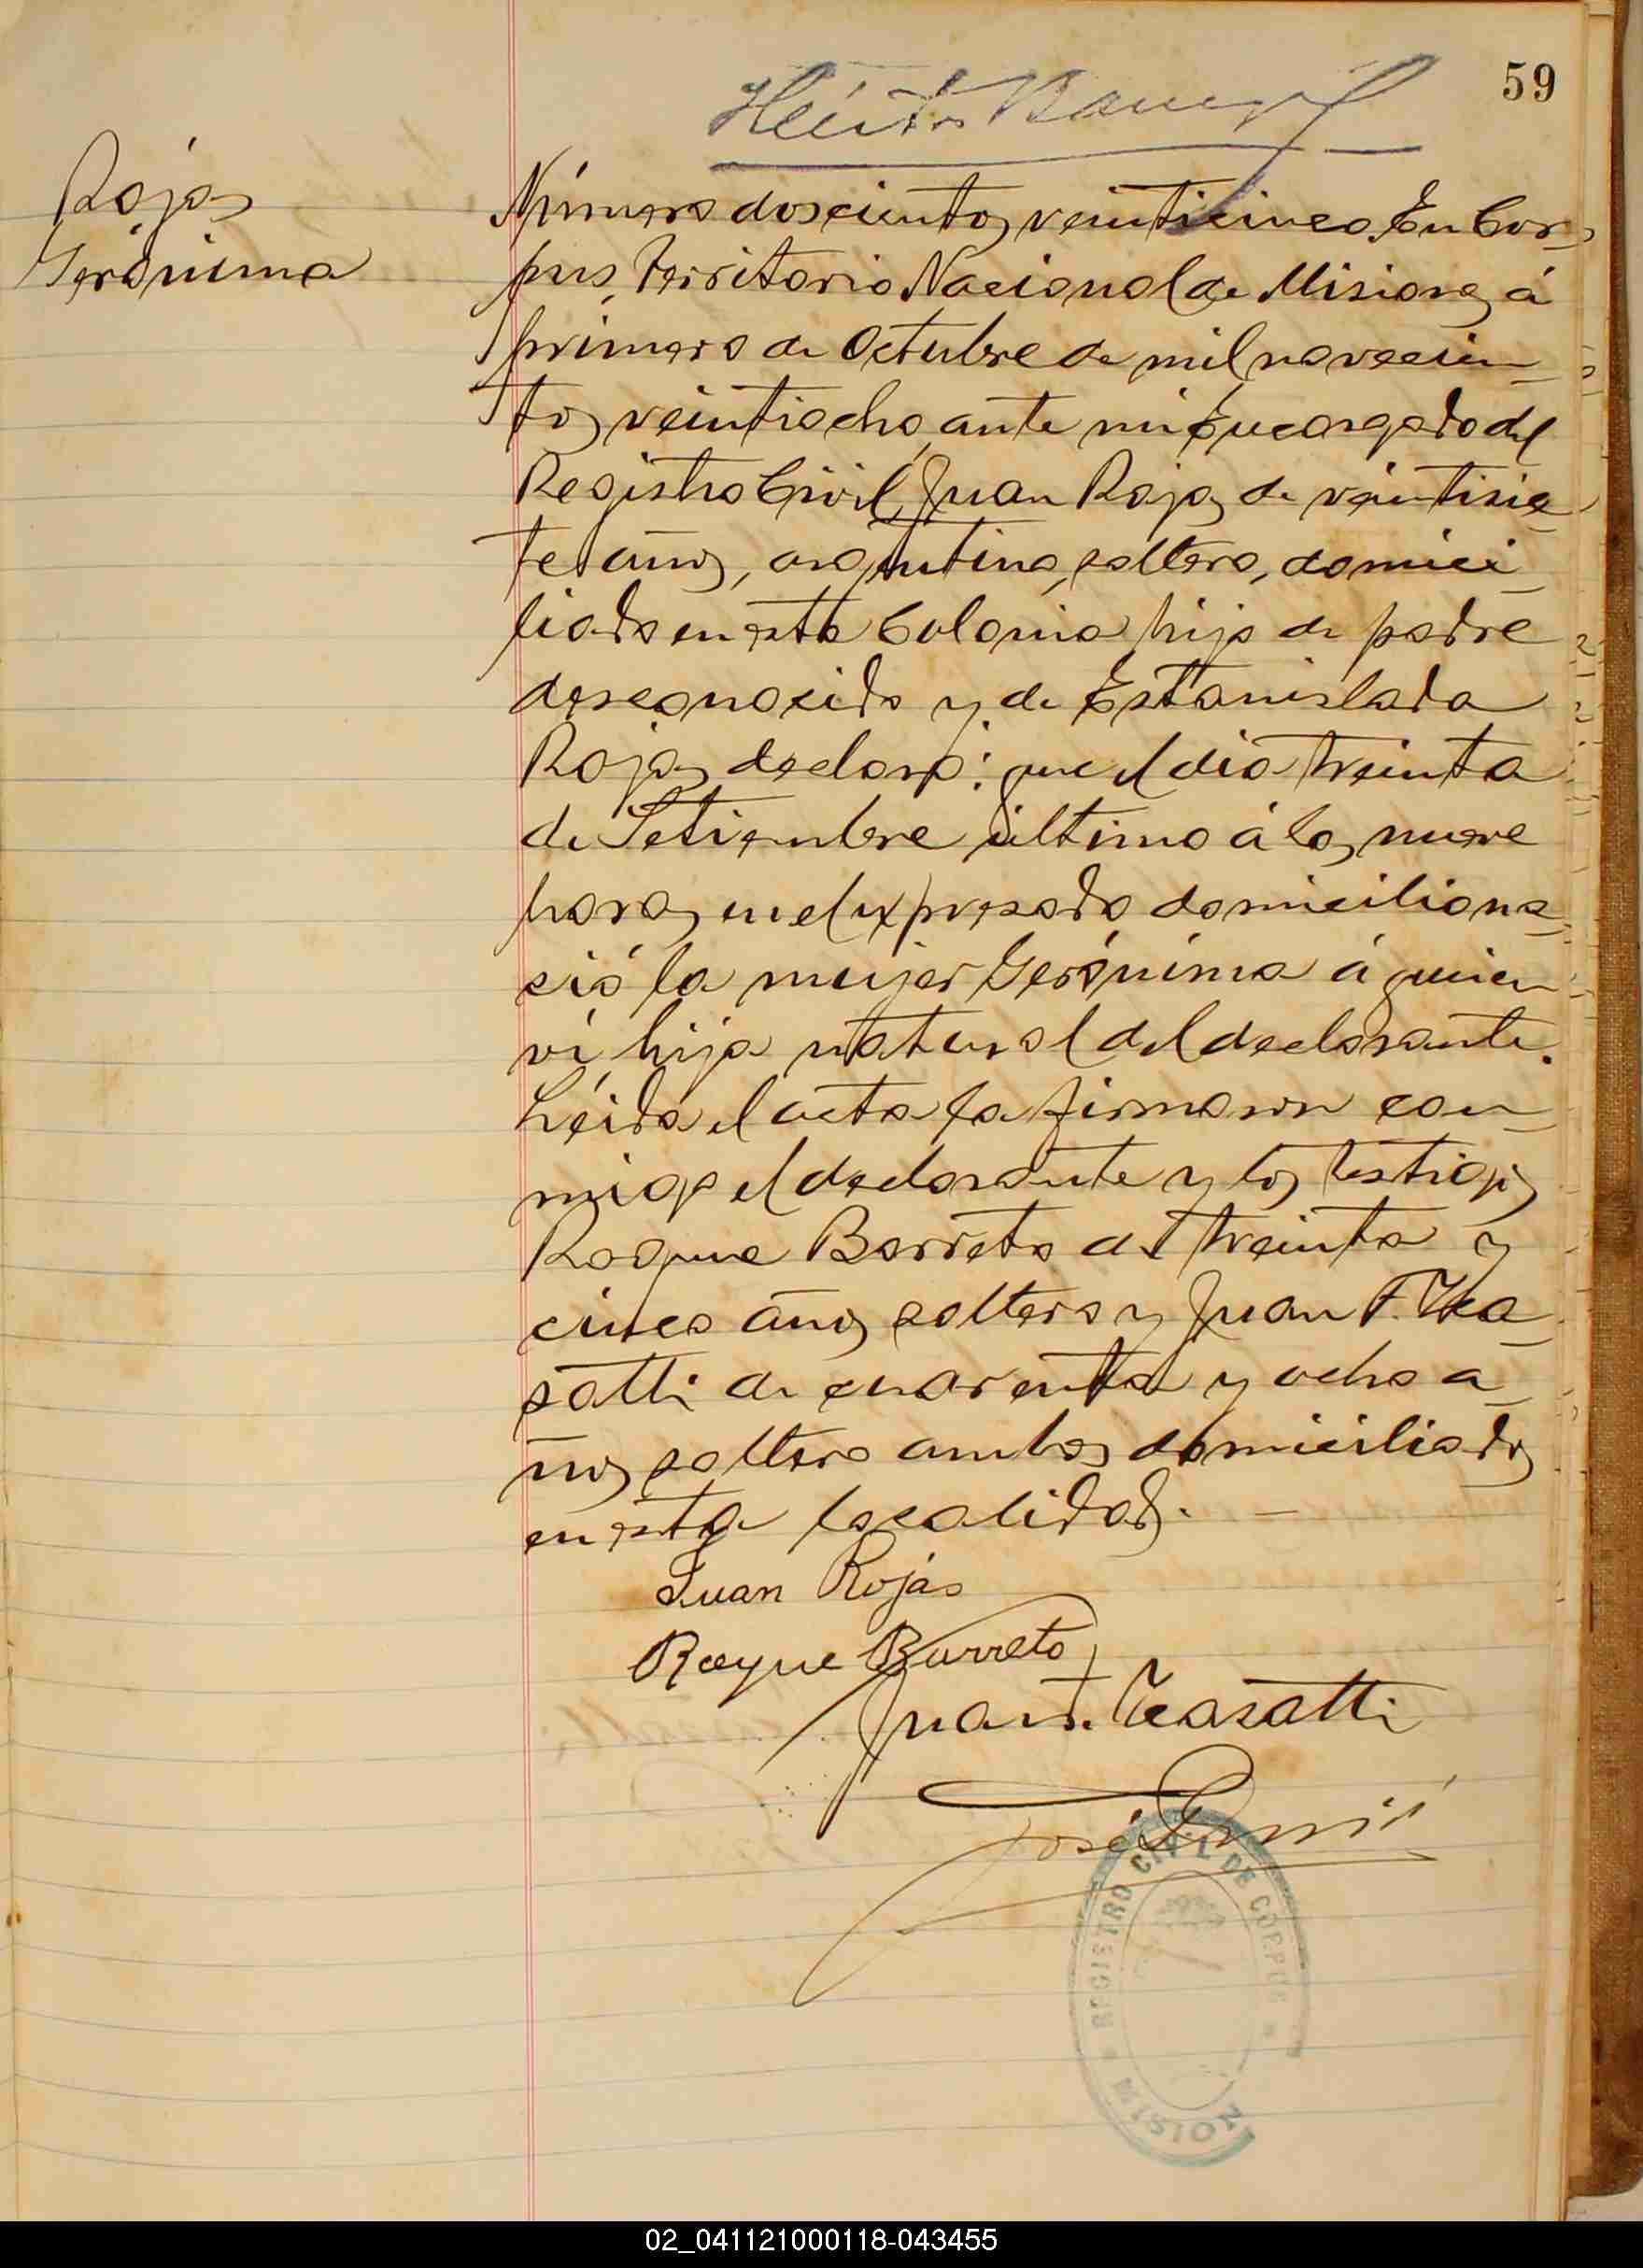 59
Rojas
Gerónima
Número doscientos veinticinco. En Cor-
pus, Territorio Nacional de Misiones á
primero de Octubre de mil novecien-
tos veintiocho, ante mi Encargado del
Registro Civil, Juan Rojas de veintisie-
te años, argentino, soltero, domici-
liado en esta Colonia hijo de padre
desconocido y de Estanislada
Rojas declaró: que el dia treinta
de Setiembre último á las nueve
horas en el expresado domicilio na-
ció la mujer Gerónima á quien
ví, hija natural del declarante.
Leida el acta la firmaron con-
migo el declarante y los testigos
Roque Barreto de treinta y
cinco años soltero y Juan F.
satti de cuarenta y ocho a-
ños soltero ambos domiciliados
en esta localidad. —
Juan Rojas
Roque Barreto
Juan
José
REGISTRO CIVIL DE CORPUS
MISIONES
02_041121000118-043455